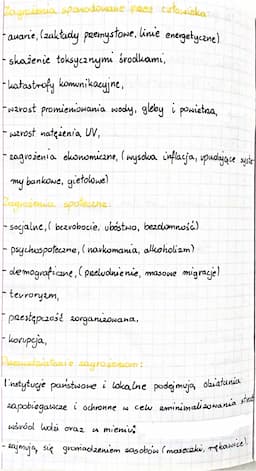 Zagrożenia spowodowane przez człowieka:
- awarie, (zakłady przemysłowe, linie energetyczne)
- skażenie toksycznymi środkami,
- katastrofy komunikacyjne,
- wzrost promieniowania wody, gleby i powietrza,
- wzrost natężenia UV,
- zagrożenia ekonomiczne, (wysoka inflacja, upadające syste
my bankowe, giełdowe)
Zagrożenia społeczne:
- socjalne, (bezrobocie, ubóstwo, bezdomność)
- psychospołeczne, (narkomania, alkoholizm)
- demograficzne, (przeludnienie, masowe migracje)
- terroryzm,
- przestępczość zorganizowana,
- korupcja,
Przeciwdziałanie zagrożeniom:
Instytucje państwowe i lokalne podejmują działania
zapobiegawcze i ochronne w celu zminimalizowania strat
wśród ludzi oraz w mieniu:
- zajmują się gromadzeniem zasobów (maseczki, rękawice)